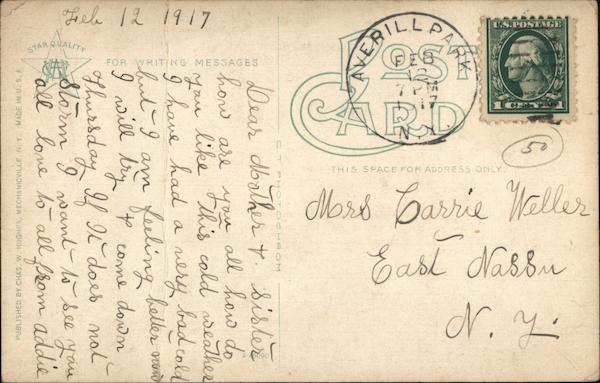 Feb 12 1917
STAR QUALITY
FOR WRITING MESSAGES
Dear Mother & sister
how are you all how do
you like this cold weather
I have had a very bad cold
but I am feeling better now
I will try & come down
Thursday If It does not
storm I want to see you
all love to all from addie
PUBLISHED BY CHAS. W. HUGHES, MECHANICVILLE, N.Y. MADE IN U.S.A.
POST CARD
THIS SPACE FOR ADDRESS ONLY.
AVERILL PARK
FEB
12
7 PM
1917
N.Y.
U.S. POSTAGE
1 CENT 1
50
Mrs Carrie Weller
East Nassu
N. Y.